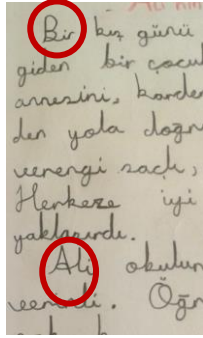 Bir kış günü
giden bir çocuk
annesini, karde
den yola doğr
verengi saçlı,
Herkese iyi
yaklaşırdı.
Ali okulun
verirdi. Öğr